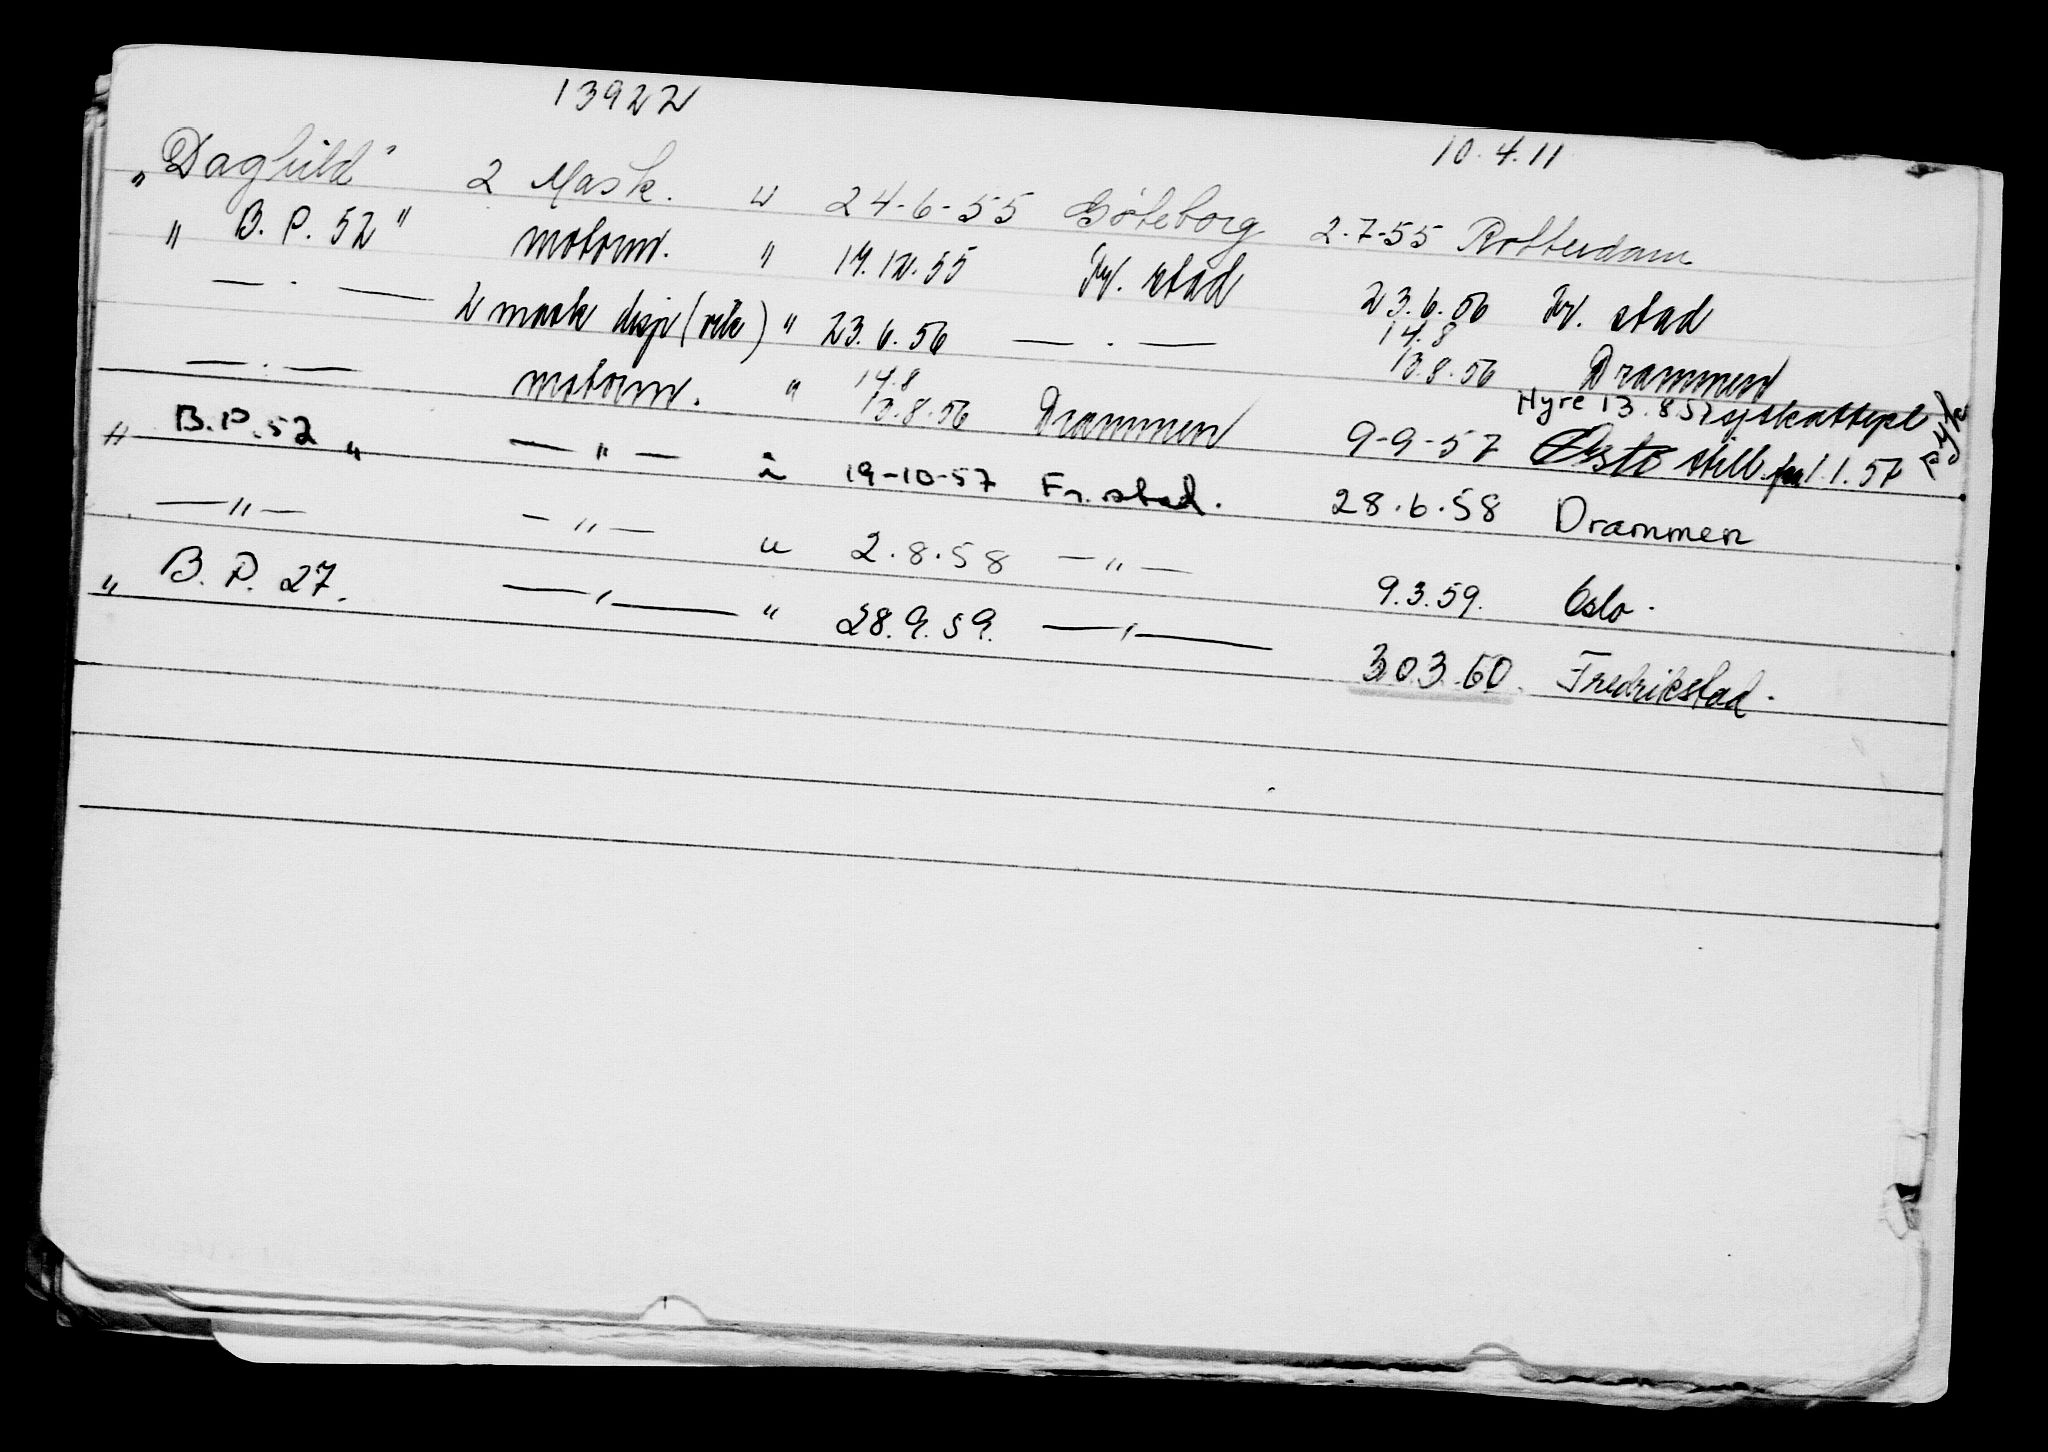 13922
10.4.11
"Daghild" 2 Mask. " 24-6-55 Göteborg 2-7-55 Rotterdam
" B.P. 52" motorm. " 19.12.55 Fr. stad 23.6.56 Fr. stad
— . — 2 mask disp (vik) " 23.6.56 — . — 14.8 13.8.56 Drammen
— . — motorm. " 14.8 13.8.56 Drammen 9-9-57 Oslo
Hyre 13.8.57 sjøskattepl
still fra 1.1.57
" B.P. 52 " — " — " 19-10-57 Fr. stad. 28.6.58 Drammen
— " — — " — " 2.8.58 — " — 9.3.59. Oslo.
" B.P. 27. — " — " 28.9.59. — " — 30.3.60. Fredrikstad.